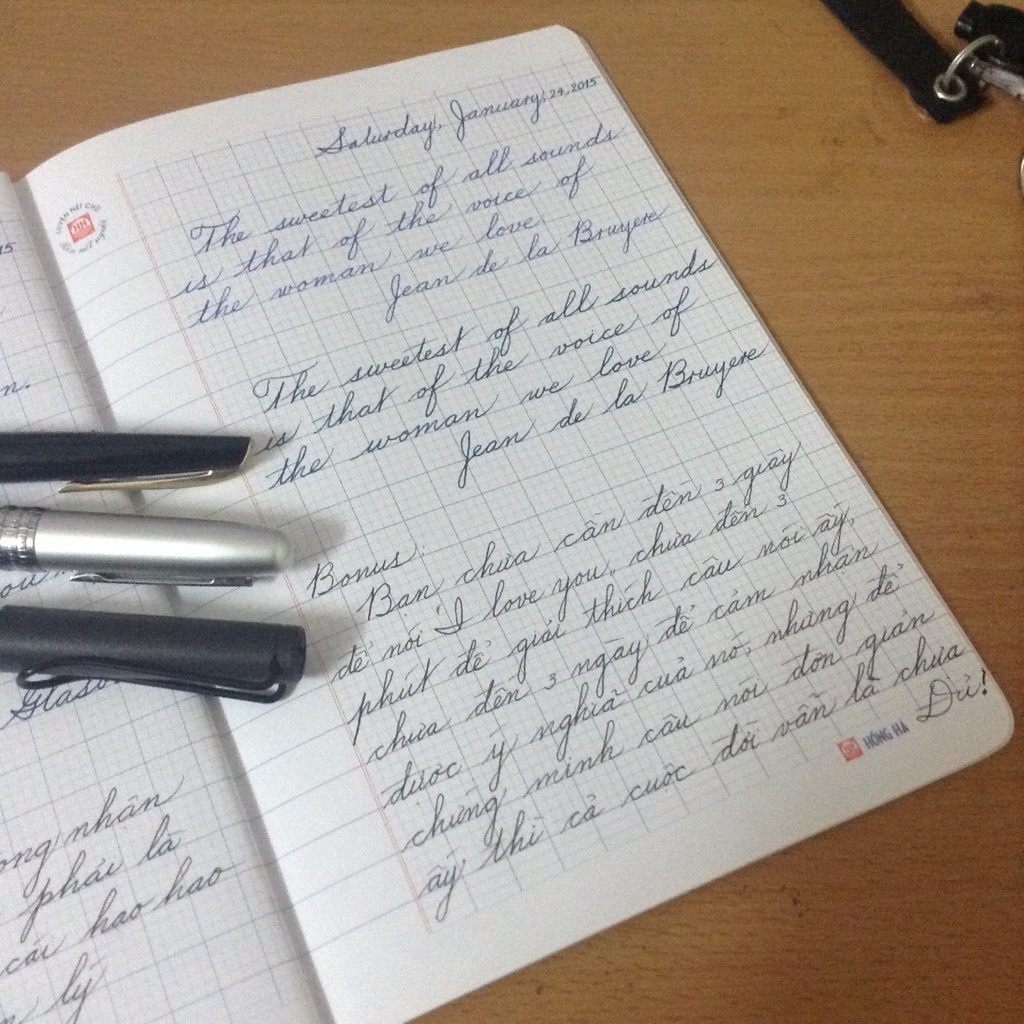 Saturday, January, 24, 2015
The sweetest of all sounds
is that of the voice of
the woman we love
Jean de la Bruyere
The sweetest of all sounds
is that of the voice of
the woman we love
Jean de la Bruyere
Bonus:
Bạn chưa cần đến 3 giây
để nói "I love you", chưa đến 3
phút để giải thích câu nói ấy,
chưa đến 3 ngày để cảm nhận
được ý nghĩa của nó, nhưng để
chứng minh câu nói đơn giản
ấy thì cả cuộc đời vẫn là chưa
Đủ!
HỒNG HÀ
LUYỆN NÉT CHỮ
Rèn nết người
15
n.
ong nhận
phải là
cái hao hao
lý